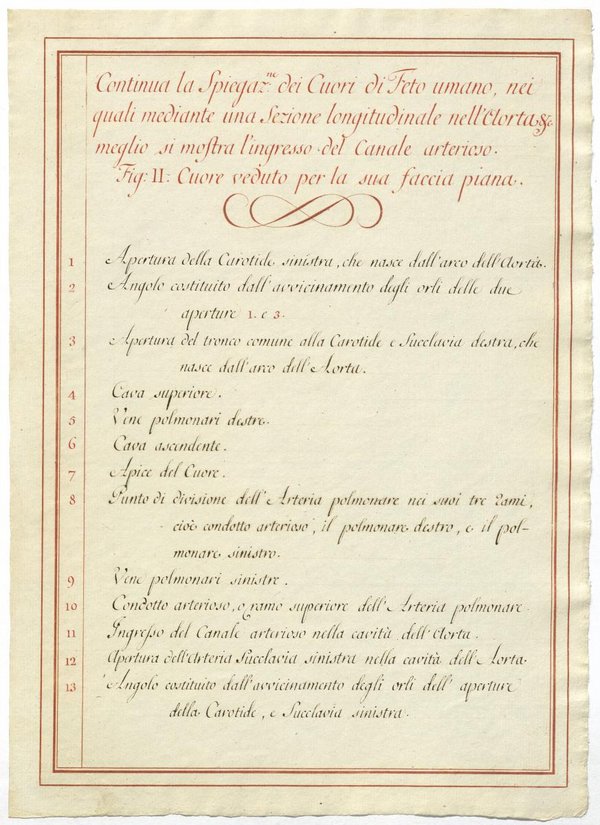 Continua la Spiegaz.ne dei Cuori di Feto umano, nei
quali mediante una Sezione longitudinale nell'Aorta &c.
meglio si mostra l'ingresso del Canale arterioso.
Fig: II: Cuore veduto per la sua faccia piana.
1 Apertura della Carotide sinistra, che nasce dall'arco dell'Aorta.
2 Angolo costituito dall'avvicinamento degli orli delle due
aperture 1. e 3.
3 Apertura del tronco comune alla Carotide e Succlavia destra, che
nasce dall'arco dell'Aorta.
4 Cava superiore.
5 Vene polmonari destre.
6 Cava ascendente.
7 Apice del Cuore.
8 Punto di divisione dell'Arteria polmonare nei suoi tre rami,
cioè condotto arterioso, il polmonare destro, e il pol-
monare sinistro.
9 Vene polmonari sinistre.
10 Condotto arterioso, o ramo superiore dell'Arteria polmonare.
11 Ingresso del Canale arterioso nella cavità dell'Aorta.
12 Apertura dell'Arteria Succlavia sinistra nella cavità dell'Aorta.
13 Angolo costituito dall'avvicinamento degli orli dell'aperture
della Carotide, e Succlavia sinistra.